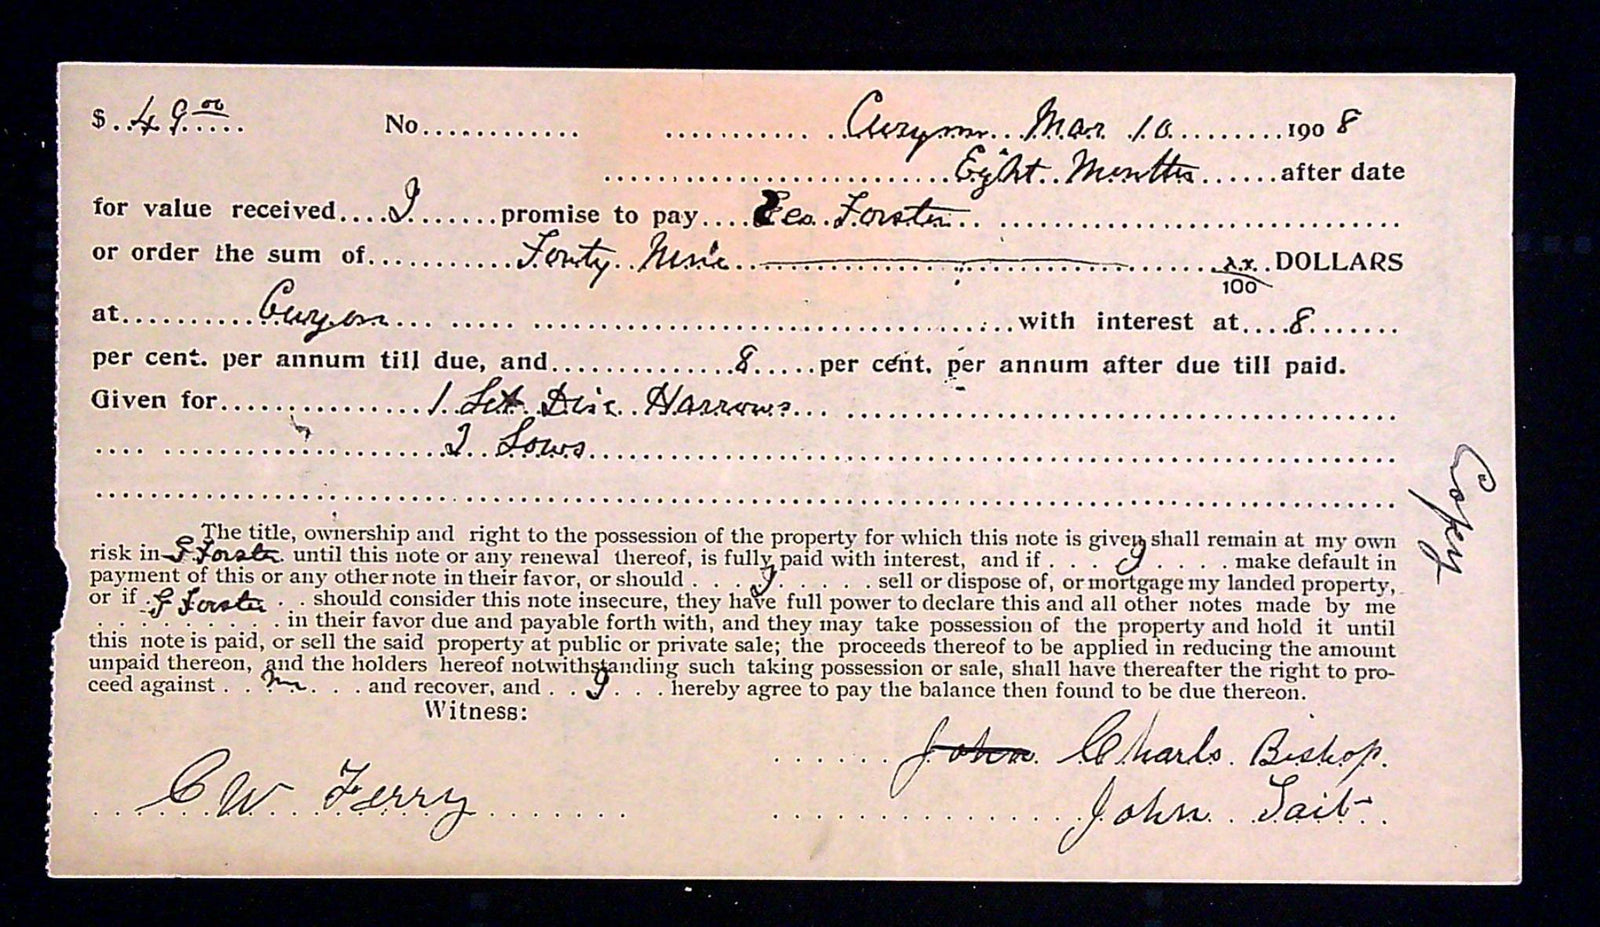 $ 49 00 No. Mar 10 1908
Eight Months after date
for value received I promise to pay Geo Forster
or order the sum of Forty Nine xx/100 DOLLARS
at with interest at 8
per cent. per annum till due, and 8 per cent. per annum after due till paid.
Given for 1 Set Disc Harrows
2 Sows
The title, ownership and right to the possession of the property for which this note is given shall remain at my own
risk in G Forster until this note or any renewal thereof, is fully paid with interest, and if I make default in
payment of this or any other note in their favor, or should I sell or dispose of, or mortgage my landed property,
or if G Forster should consider this note insecure, they have full power to declare this and all other notes made by me
in their favor due and payable forth with, and they may take possession of the property and hold it until
this note is paid, or sell the said property at public or private sale; the proceeds thereof to be applied in reducing the amount
unpaid thereon, and the holders hereof notwithstanding such taking possession or sale, shall have thereafter the right to pro-
ceed against me and recover, and I hereby agree to pay the balance then found to be due thereon.
Witness:
John Charls Bishop.
C W Ferry
John Tait
Copy